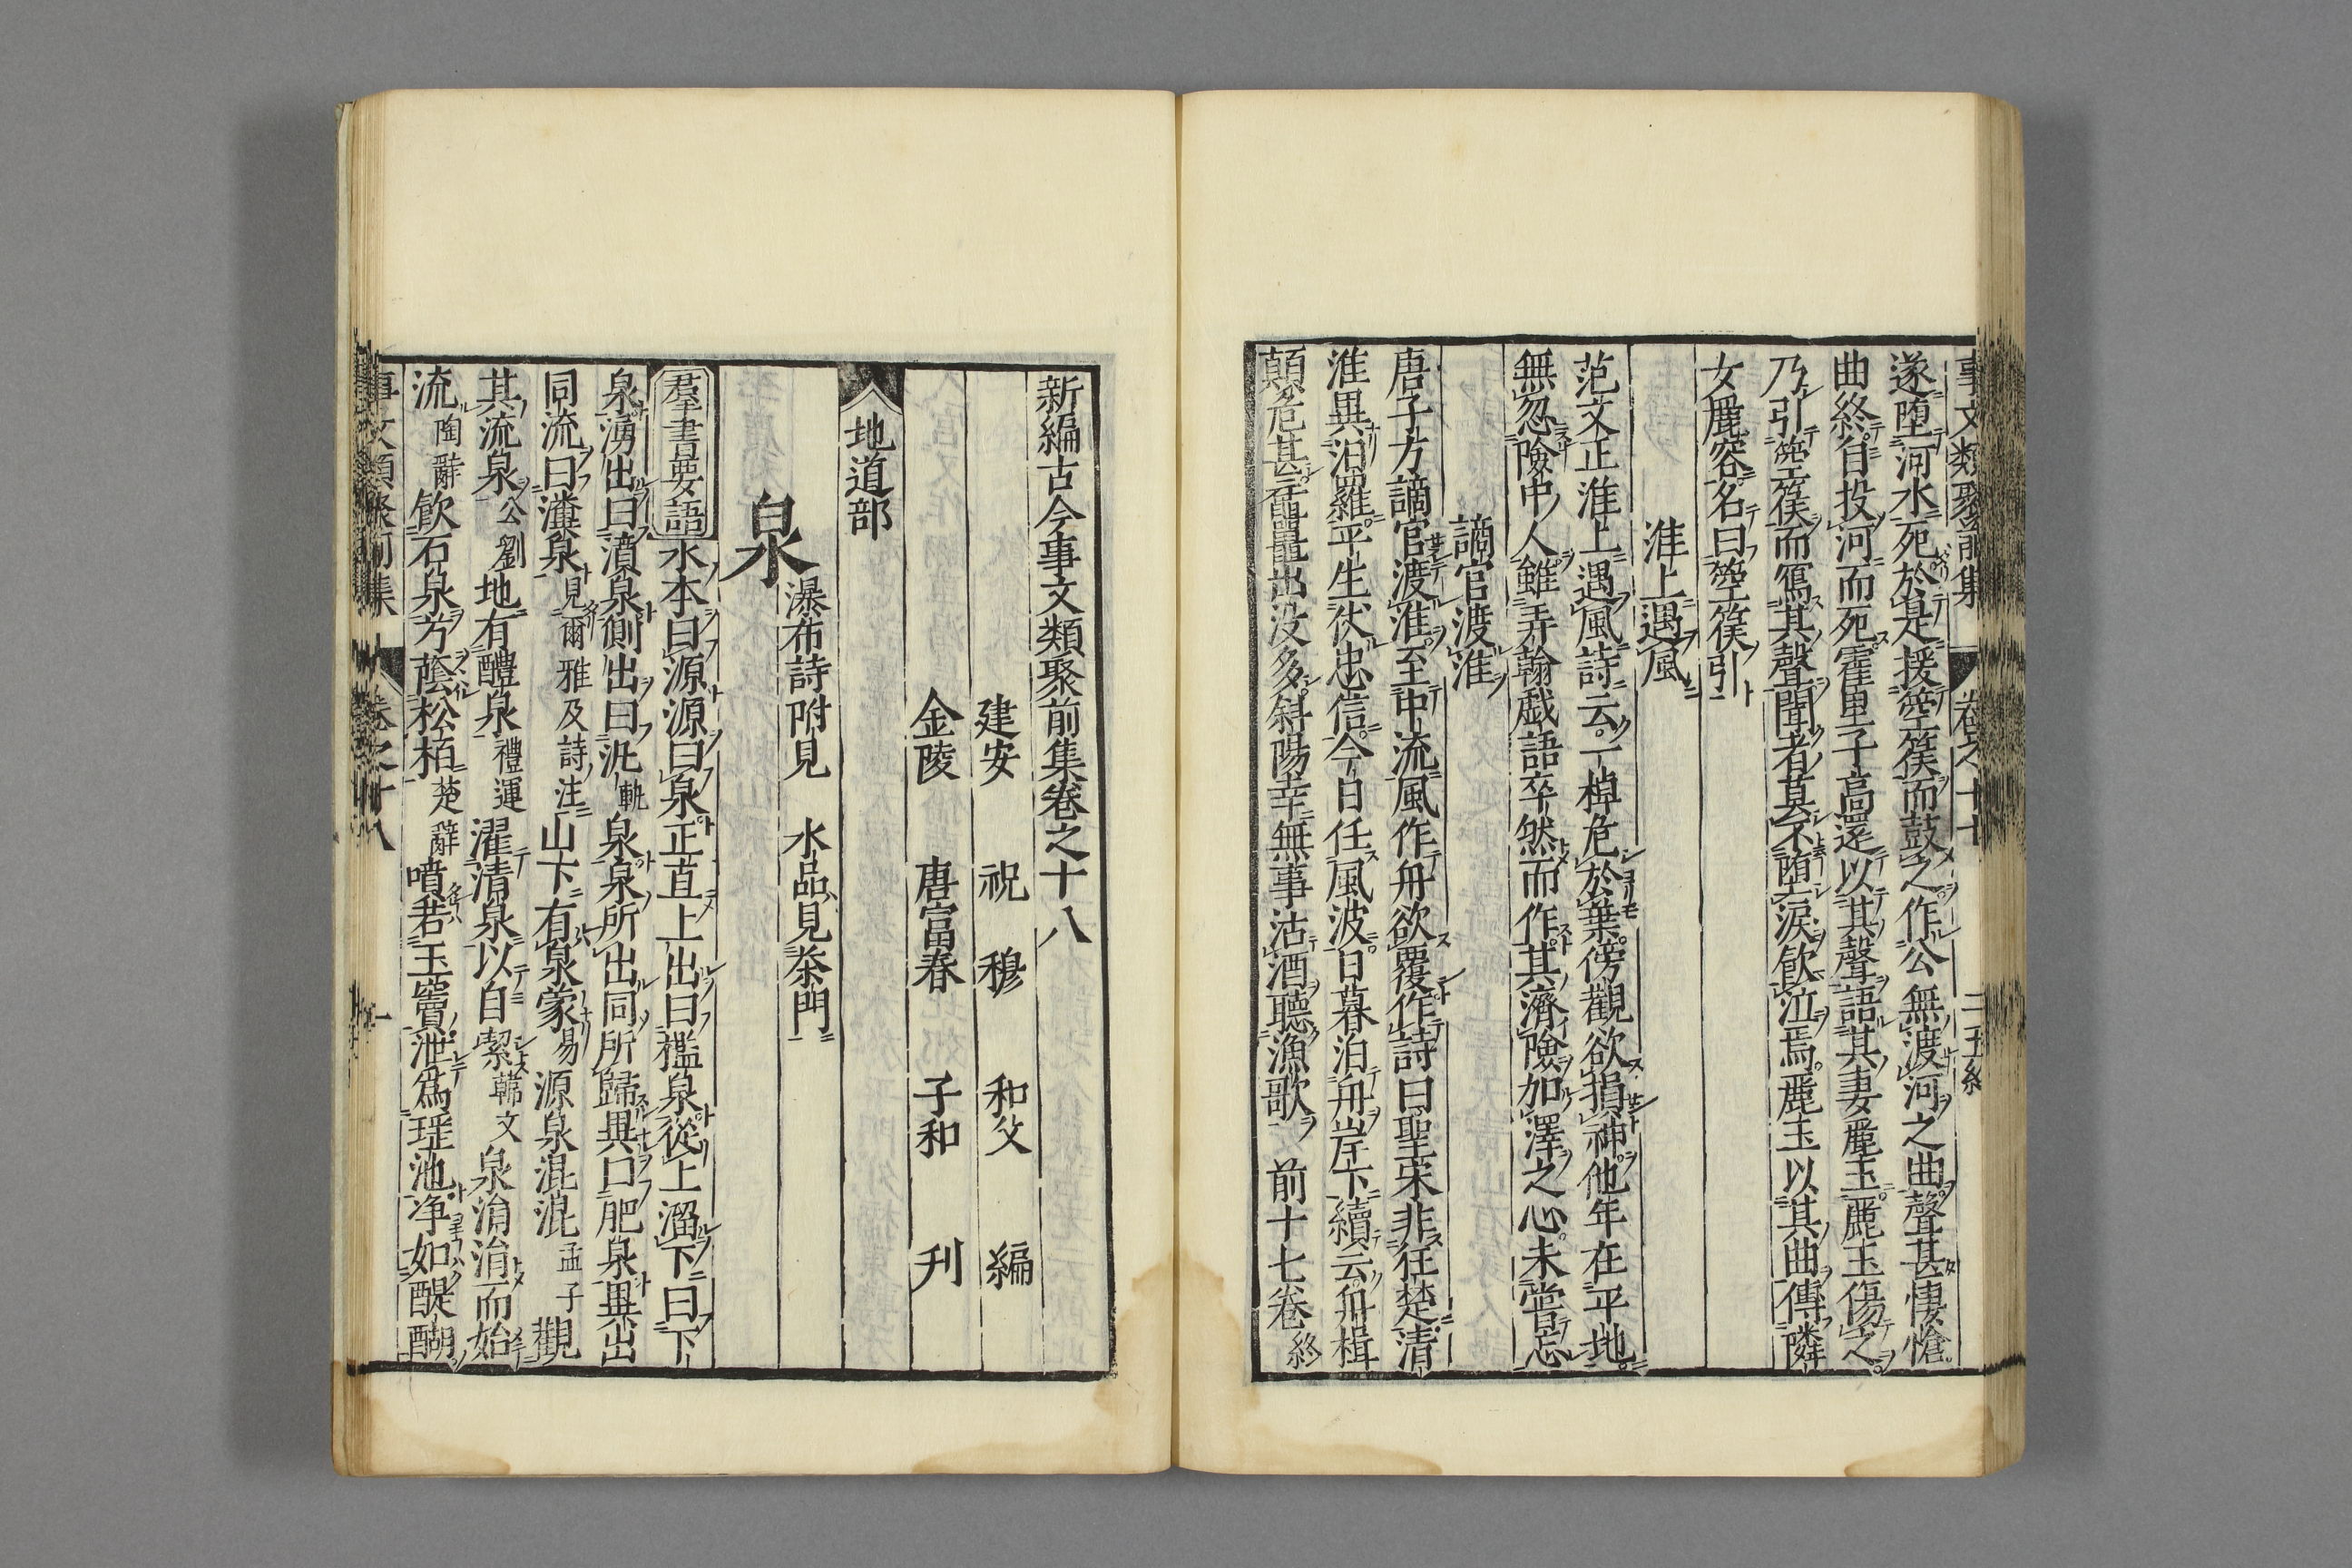 遂墮河水死於是援箜篌而鼓之作公無渡河之曲聲甚悽愴
曲終自投河而死霍里子高還以其聲語其妻麗玉麗玉傷之
乃引箜篌而寫其聲聞者莫不墮淚飲泣焉麗玉以其曲傳隣
女麗容名曰箜篌引
淮上遇風
范文正淮上遇風詩云一棹危於葉傍觀欲損神他年在平地
無忽險中人雖弄翰戲語卒然而作其濟險加澤之心未嘗忘
謫官渡淮
唐子方謫官渡淮至中流風作舟欲覆作詩曰聖宋非狂楚清
淮異汨羅平生仗忠信今日任風波日暮泊舟岸下續云舟楫
顛危甚黿鼉出没多斜陽幸無事沽酒聽漁歌 前十七卷終
新編古今事文類聚前集卷之十八
建安 祝 穆 和父 編
金陵 唐富春 子和 刋
地道部
泉 瀑布詩附見 水品見茶門
羣書要語 水本曰源源曰泉正直上出曰檻泉從上溜下曰下
泉湧出曰濆泉側出曰氿軌泉泉所出同所歸異曰肥泉異出
同流曰瀵泉見爾雅及詩注山下有泉蒙易源泉混混孟子觀
其流泉公劉地有醴泉禮運濯清泉以自潔韓文泉涓涓而始
流陶辭飲石泉兮蔭松栢楚辭噴若玉竇泄爲瑶池净如醍醐
事文類聚前集 卷之十八 一